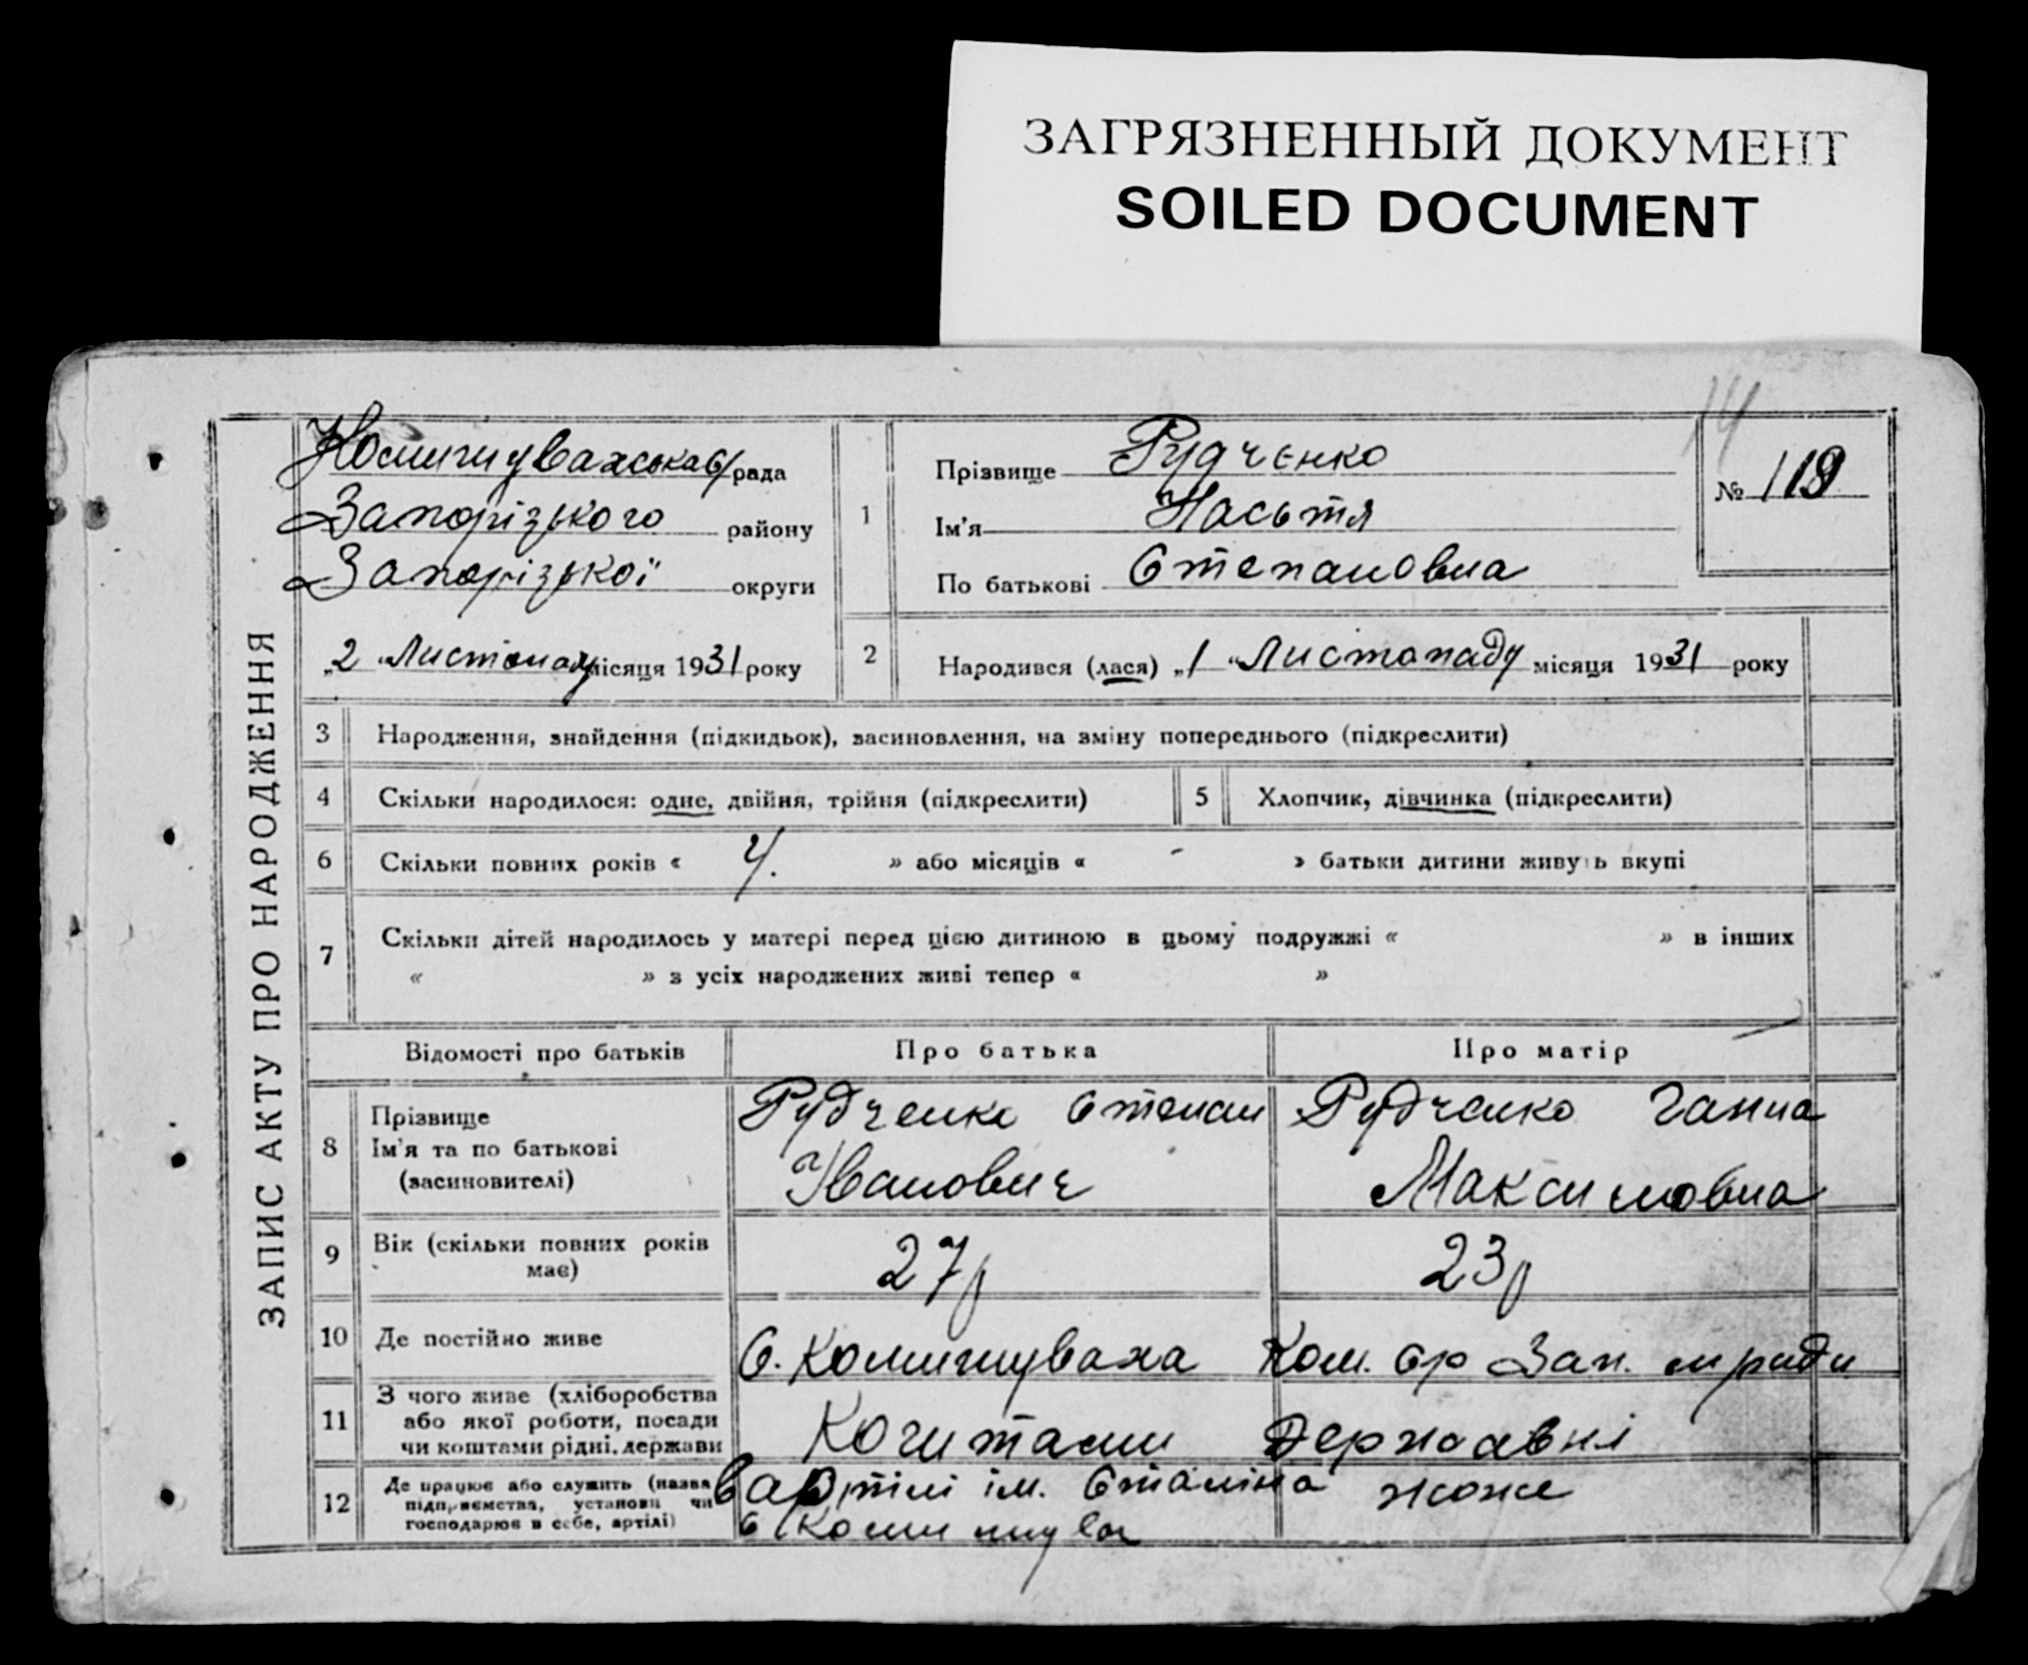 ЗАГРЯЗНЕННЫЙ ДОКУМЕНТ
SOILED DOCUMENT
14
ЗАПИС АКТУ ПРО НАРОДЖЕННЯ
Комишувахська с/рада
Запорізького району
Запорізької округи
„2 “ Листопаду місяця 1931 року
1
Прізвище Рудченко
Ім'я Насьтя
По батькові Степановна
№ 119
2 Народився (лася) „1 “ Листопаду місяця 1931 року
3 Народження, знайдення (підкидьок), засиновлення, на зміну попереднього (підкреслити)
4 Скільки народилося: одне, двійня, трійня (підкреслити) 5 Хлопчик, дівчинка (підкреслити)
6 Скільки повних років « 4. » або місяців « - » батьки дитини живуть вкупі
7 Скільки дітей народилось у матері перед цією дитиною в цьому подружжі « » в інших
« » з усіх народжених живі тепер « »
Відомості про батьків Про батька Про матір
8 Прізвище
Ім'я та по батькові
(засиновителі)
Рудченко Степан
Іванович
Рудченко Ганна
Максимовна
9 Вік (скільки повних років
має)
27р 23р
10 Де постійно живе С. Комишуваха Ком. ср Зап. м ради
11 З чого живе (хліборобства
або якої роботи, посади
чи коштами рідні, держави
Коштами Державні
12 Де працює або служить (назва
підприємства, установи чи
господарює в себе, артілі)
в артілі ім. Сталіна
с Комишува